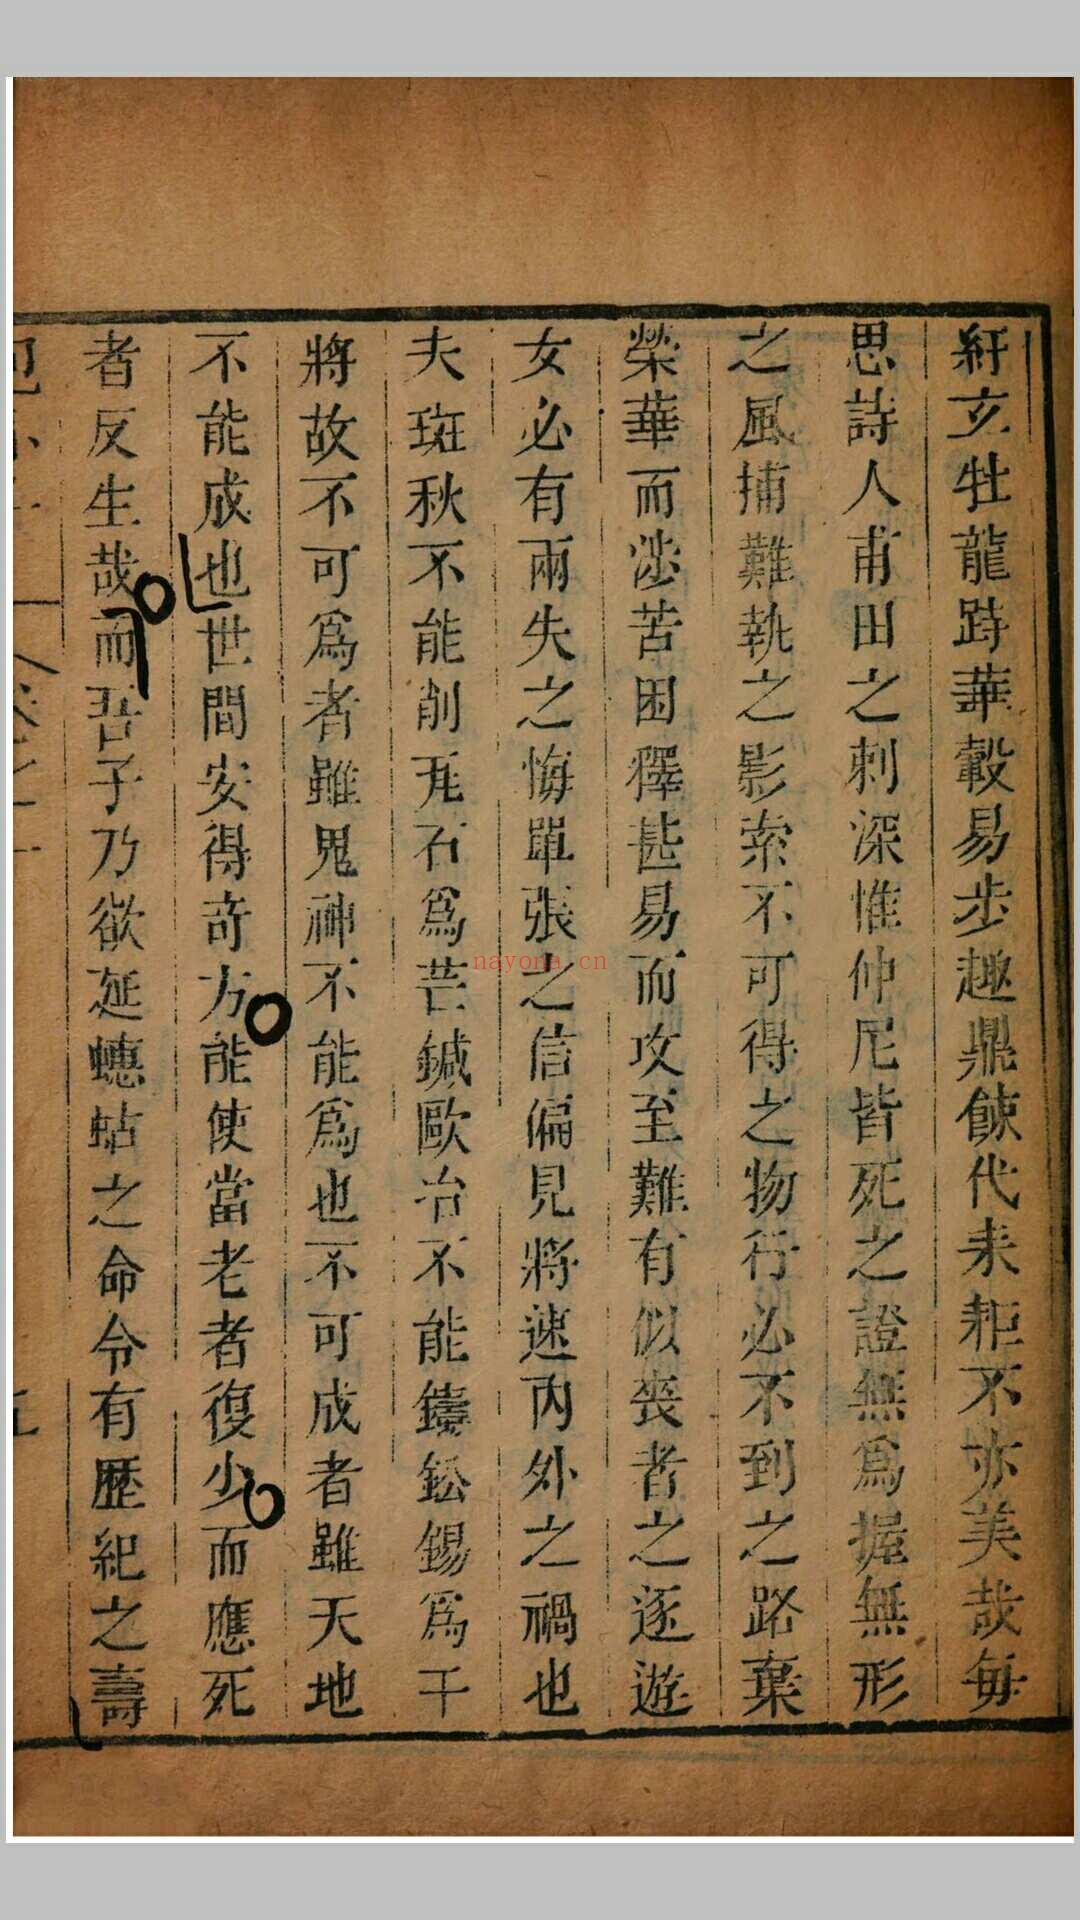 紆玄牡龍跱華轂易步趣鼎餗代耒耟不亦美哉毎
思詩人甫田之刺深惟仲尼皆死之證無爲握無形
之風捕難執之影索不可得之物行必不到之路棄
榮華而涉苦困釋甚易而攻至難有似喪者之逐遊
女必有兩失之悔單張之信偏見將速内外之禍也
夫班秋不能削瓦石爲芒鍼歐冶不能鑄鈆錫爲干
將故不可爲者雖鬼神不能爲也不可成者雖天地
不能成也世間安得奇方能使當老者復少而應死
者反生哉而吾子乃欲延蟪蛄之命令有歷紀之壽
nayona.cn